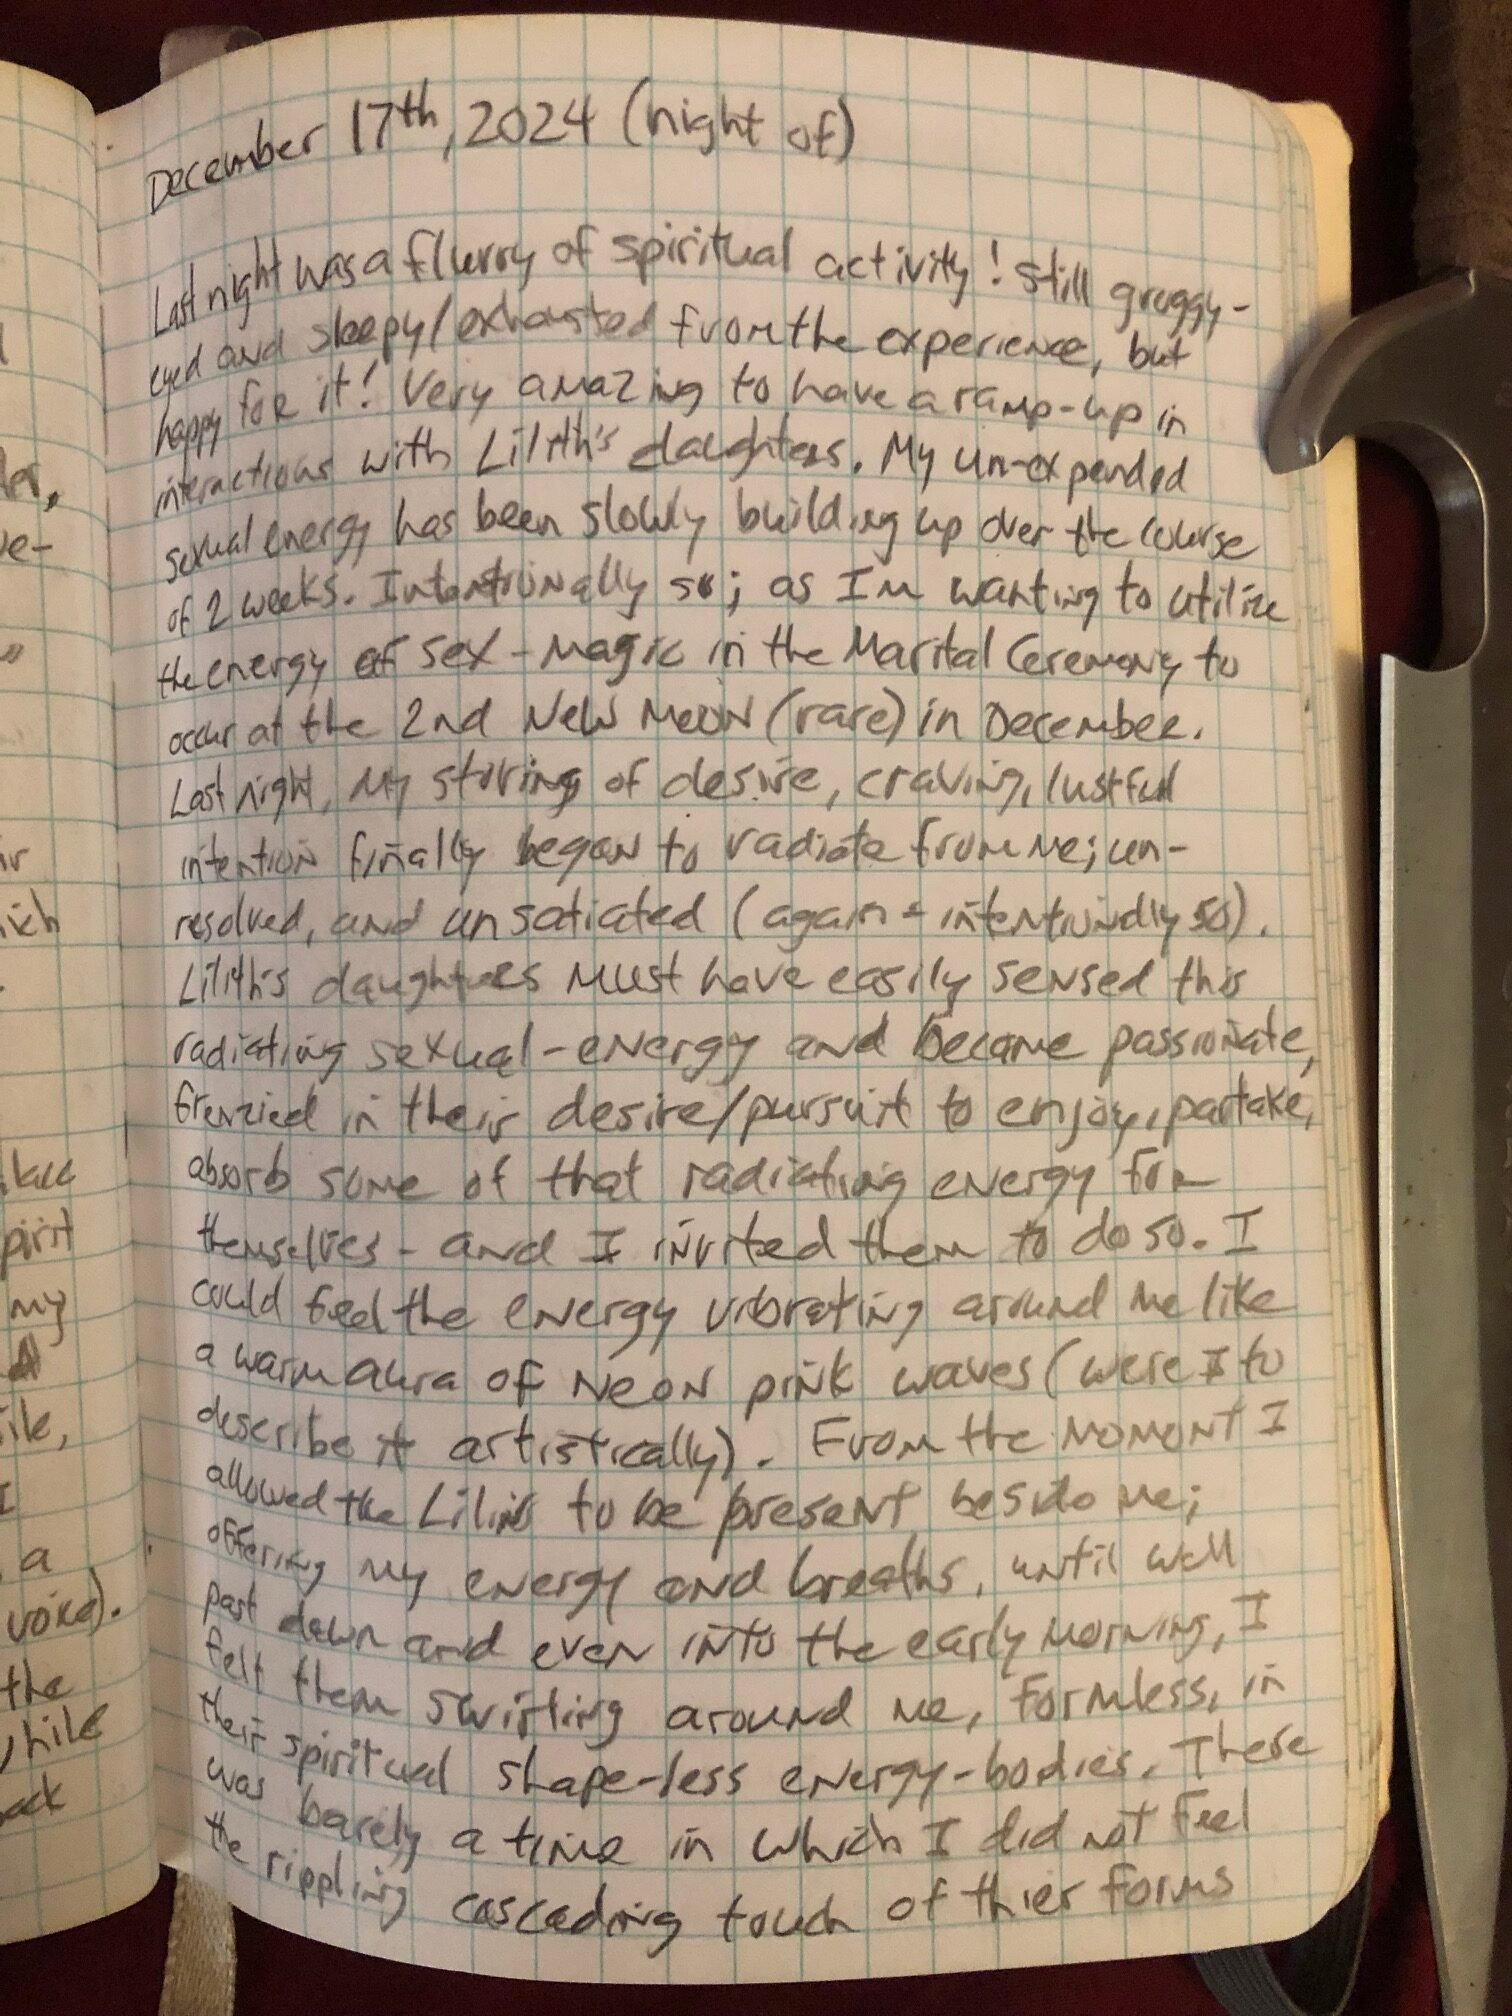 December 17th, 2024 (night of)
Last night was a flurry of spiritual activity! Still groggy-
eyed and sleepy/exhausted from the experience, but
happy for it! Very amazing to have a ramp-up in
interactions with Lilith's daughters. My un-expended
sexual energy has been slowly building up over the course
of 2 weeks. Intentionally so; as Im wanting to utilize
the energy of sex-magic in the Marital Ceremony to
occur at the 2nd New Moon (rare) in December.
Last night, my storing of desire, craving, lustful
intention finally began to radiate from me; un-
resolved, and unsatiated (again - intentionally so).
Lilith's daughters must have easily sensed this
radiating sexual-energy and became passionate,
frenzied in their desire/pursuit to enjoy, partake,
absorb some of that radiating energy for
themselves - and I invited them to do so. I
could feel the energy vibrating around me like
a warm aura of neon pink waves (were I to
describe it artistically). From the moment I
allowed the Lilins to be present beside me;
offering my energy and breaths, until well
past dawn and even into the early morning, I
felt them swirling around me, formless, in
their spiritual shape-less energy-bodies. There
was barely a time in which I did not feel
the rippling cascading touch of thier forms
ve-
ich
pirit
my
ile,
I
a
voice).
the
while